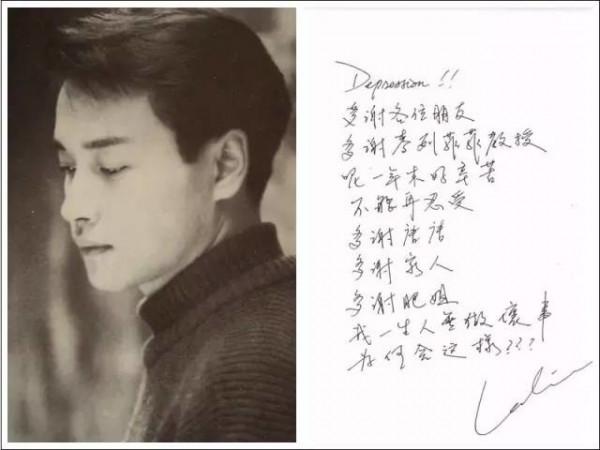 Depression!!
多謝各位朋友
多謝麥列菲菲教授
呢一年来好辛苦
不能再忍受
多謝唐唐
多謝家人
多謝肥姐
我一生人無做壞事
为何会这樣???
Leslie